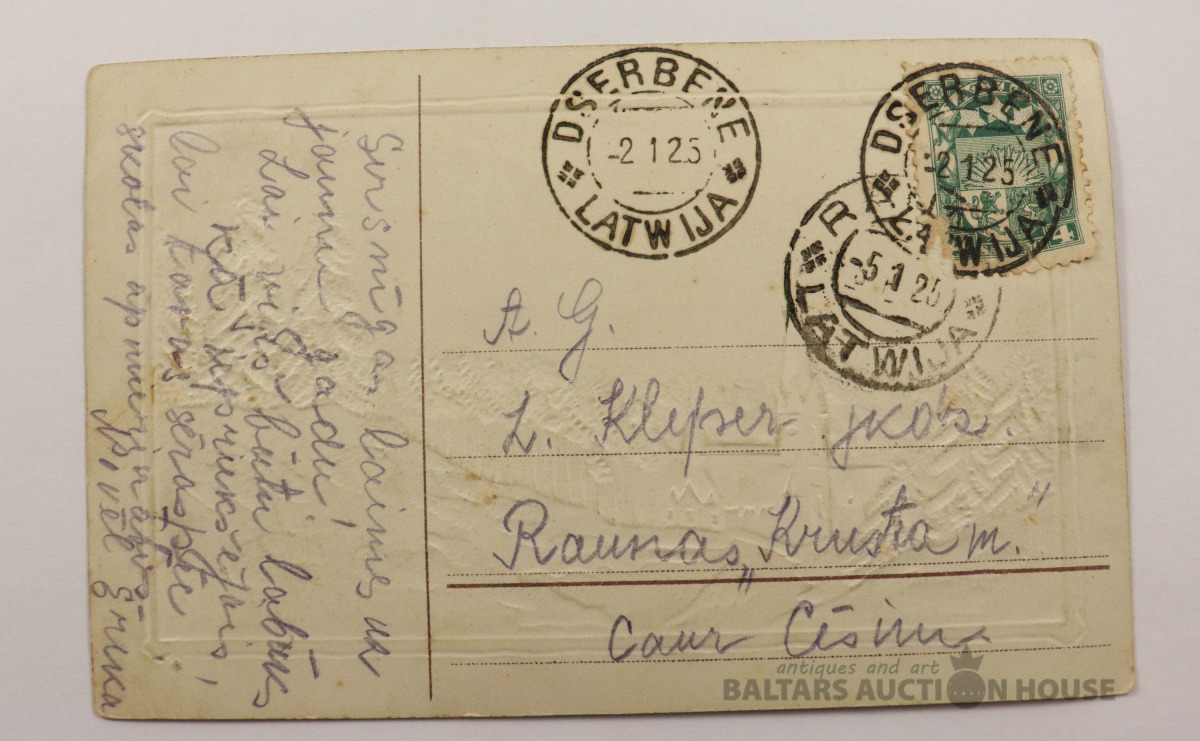 Sirsnīgas laimes un
jaunu gadu!
Lai viņš būtu labāks
kā iepriekšējais,
lai tevis
skolas
N. vēl Erika
DSERBENE
-2 1 25
LATWIJA
DSERBENE
-2 1 25
LATWIJA
-5 1 25
LATWIJA
A. G.
L. Klepser jkdz.
Raunas „Krusta m.“
caur Cēsīm
antiques and art
BALTARS AUCTION HOUSE